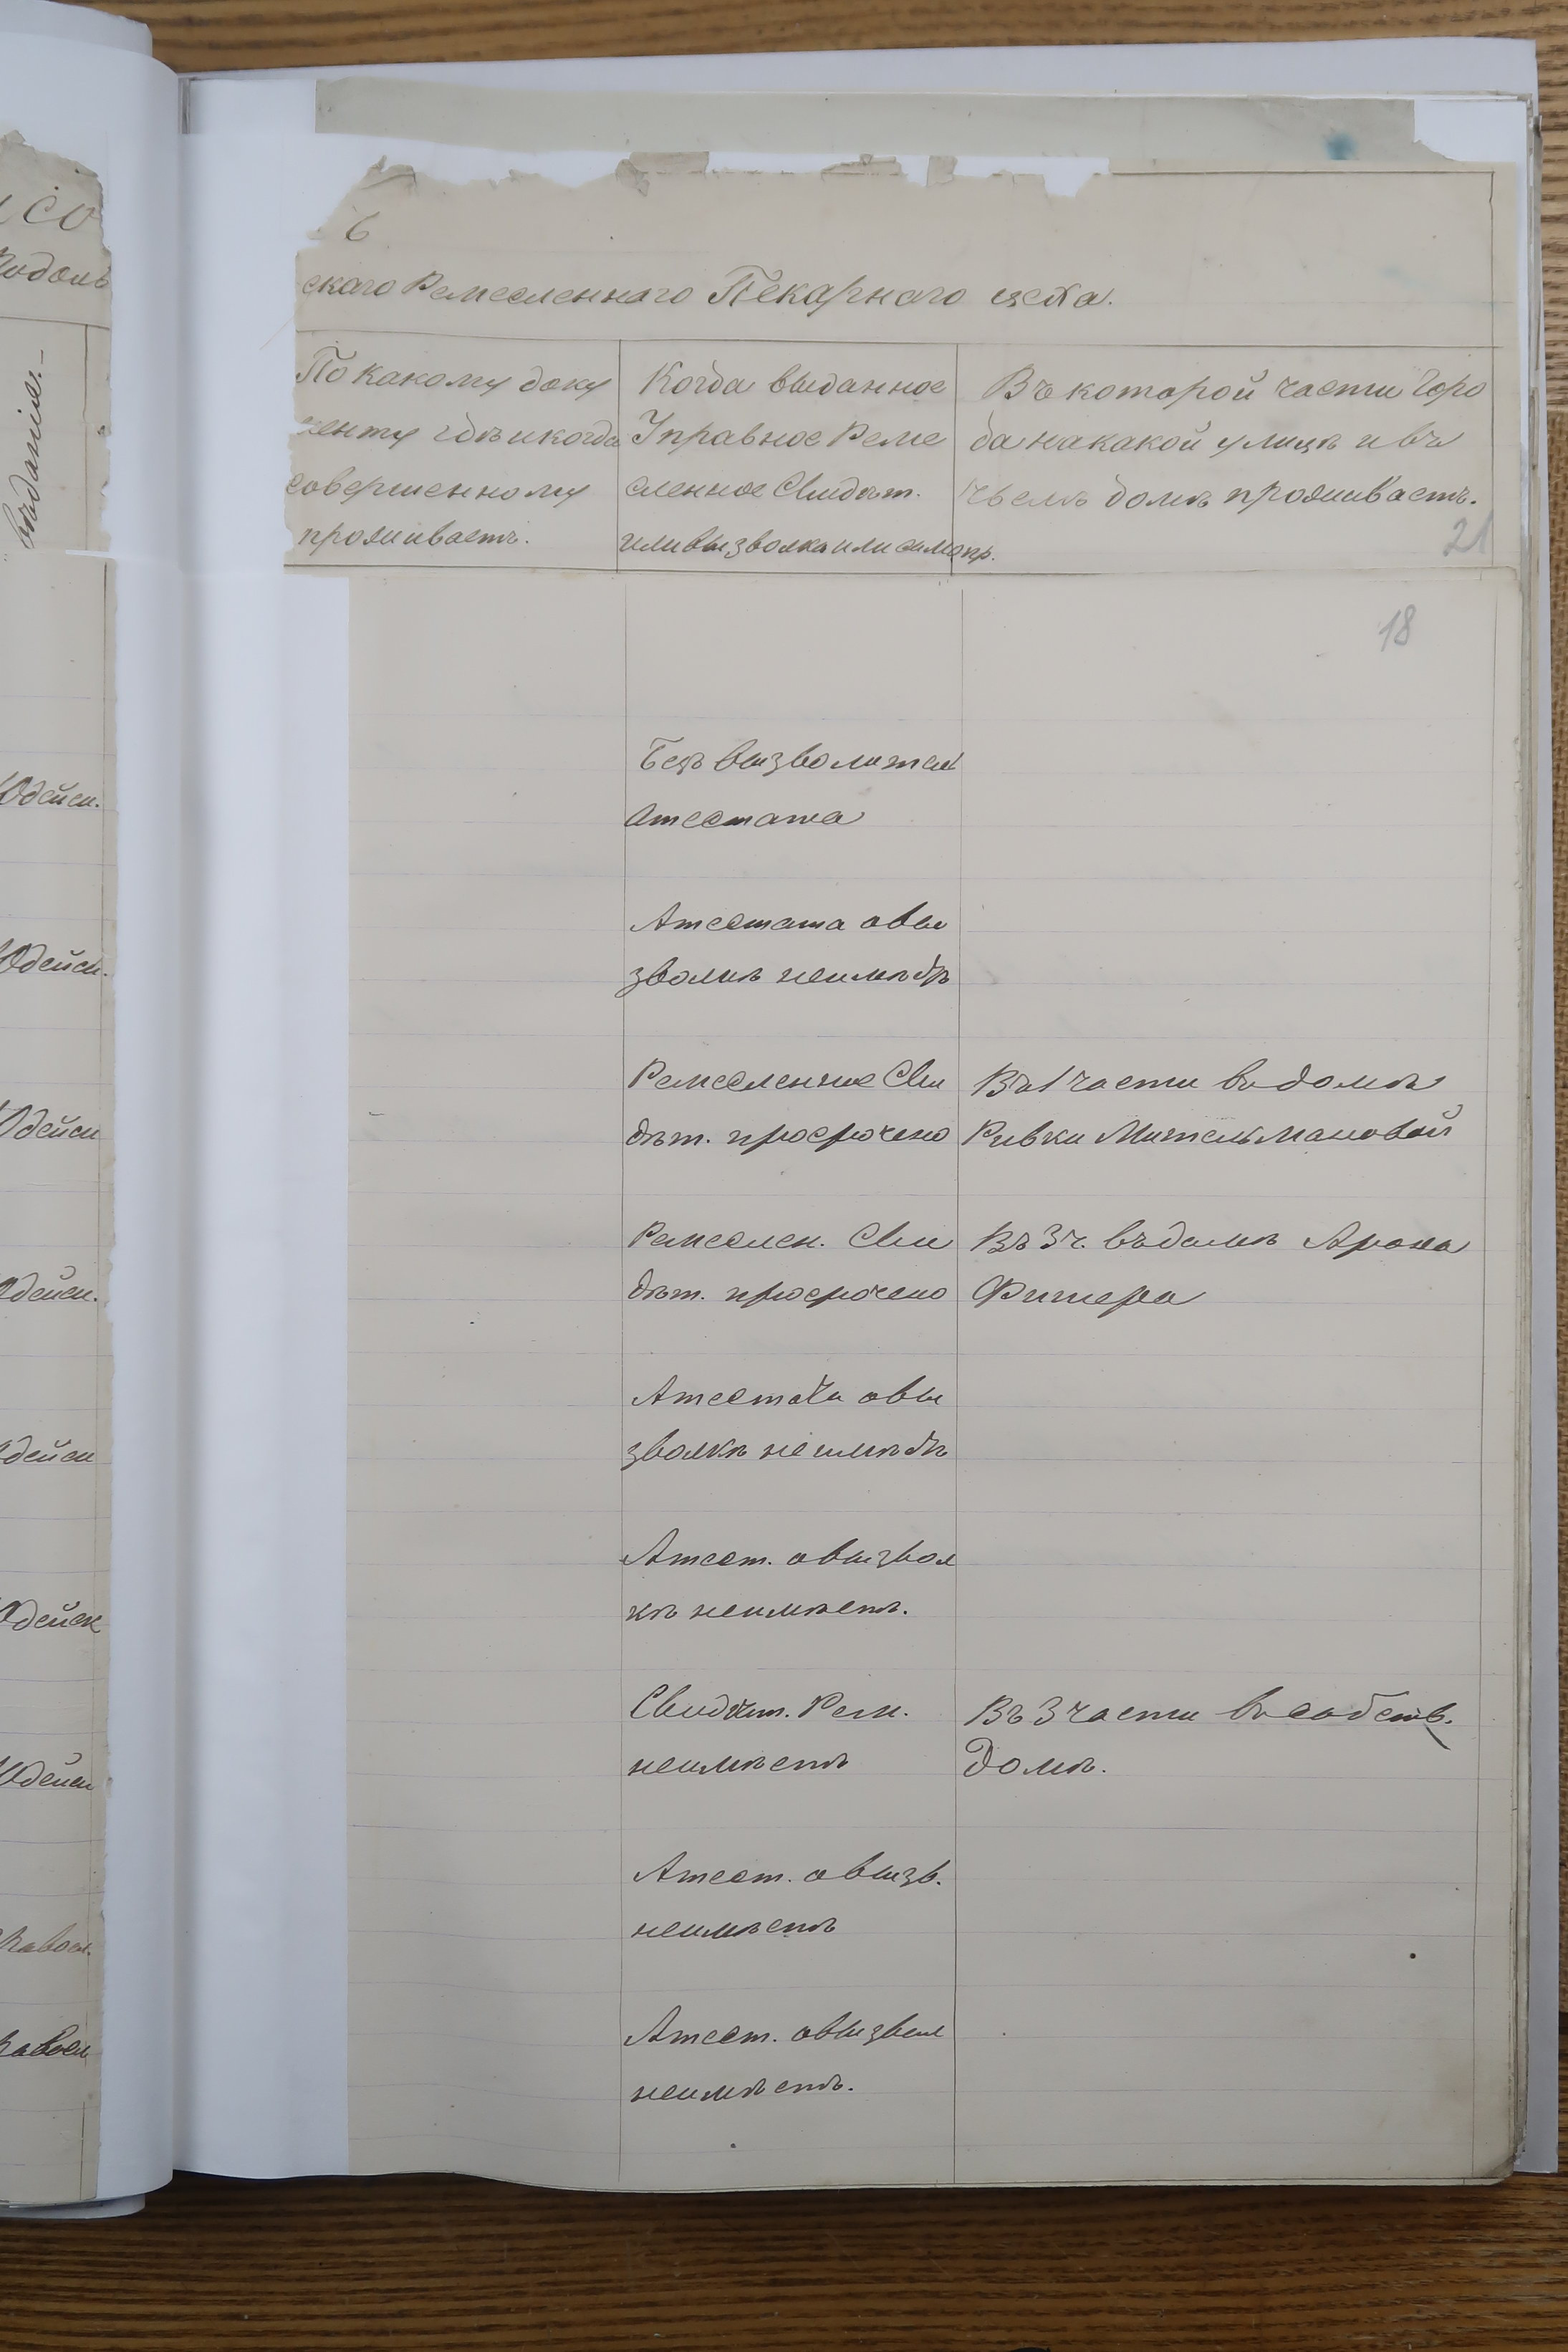 со
Подоль
вѣданія.-
Юдейск.
Юдейск.
Юдейск
Юдейск.
Юдейск
Юдейск
Юдейск
6
скаго Ремесленнаго Пекарнаго цеха.
По какому доку
менту гдѣ и когда
совершенному
проживаетъ.
Когда выданное
Управное Реме
сленное Свидѣт.
или вызволка или санопр.
Въ которой части Горо
да на какой улицѣ и въ
чьемъ домѣ проживаетъ.
21
18
безъ вызволител
Атестата
Атестата о вы
зволкѣ неимѣетъ
Ремесленное Сви
дѣт. просрочено
Въ 1 части въ домѣ
Ривки Мительмановой
Ремеслен. Сви
дѣт. просрочено
Въ 3 ч. въ домѣ Арона
Фишера
Атестата о вы
зволкѣ неимѣетъ
Атест. о вызвол
кѣ неимѣетъ.
Свидѣт. Рем.
неимѣетъ
Въ 3 части въ собств.
Домѣ.
Атест. о вызв.
неимѣетъ
Атест. о вызвол
неимѣетъ.